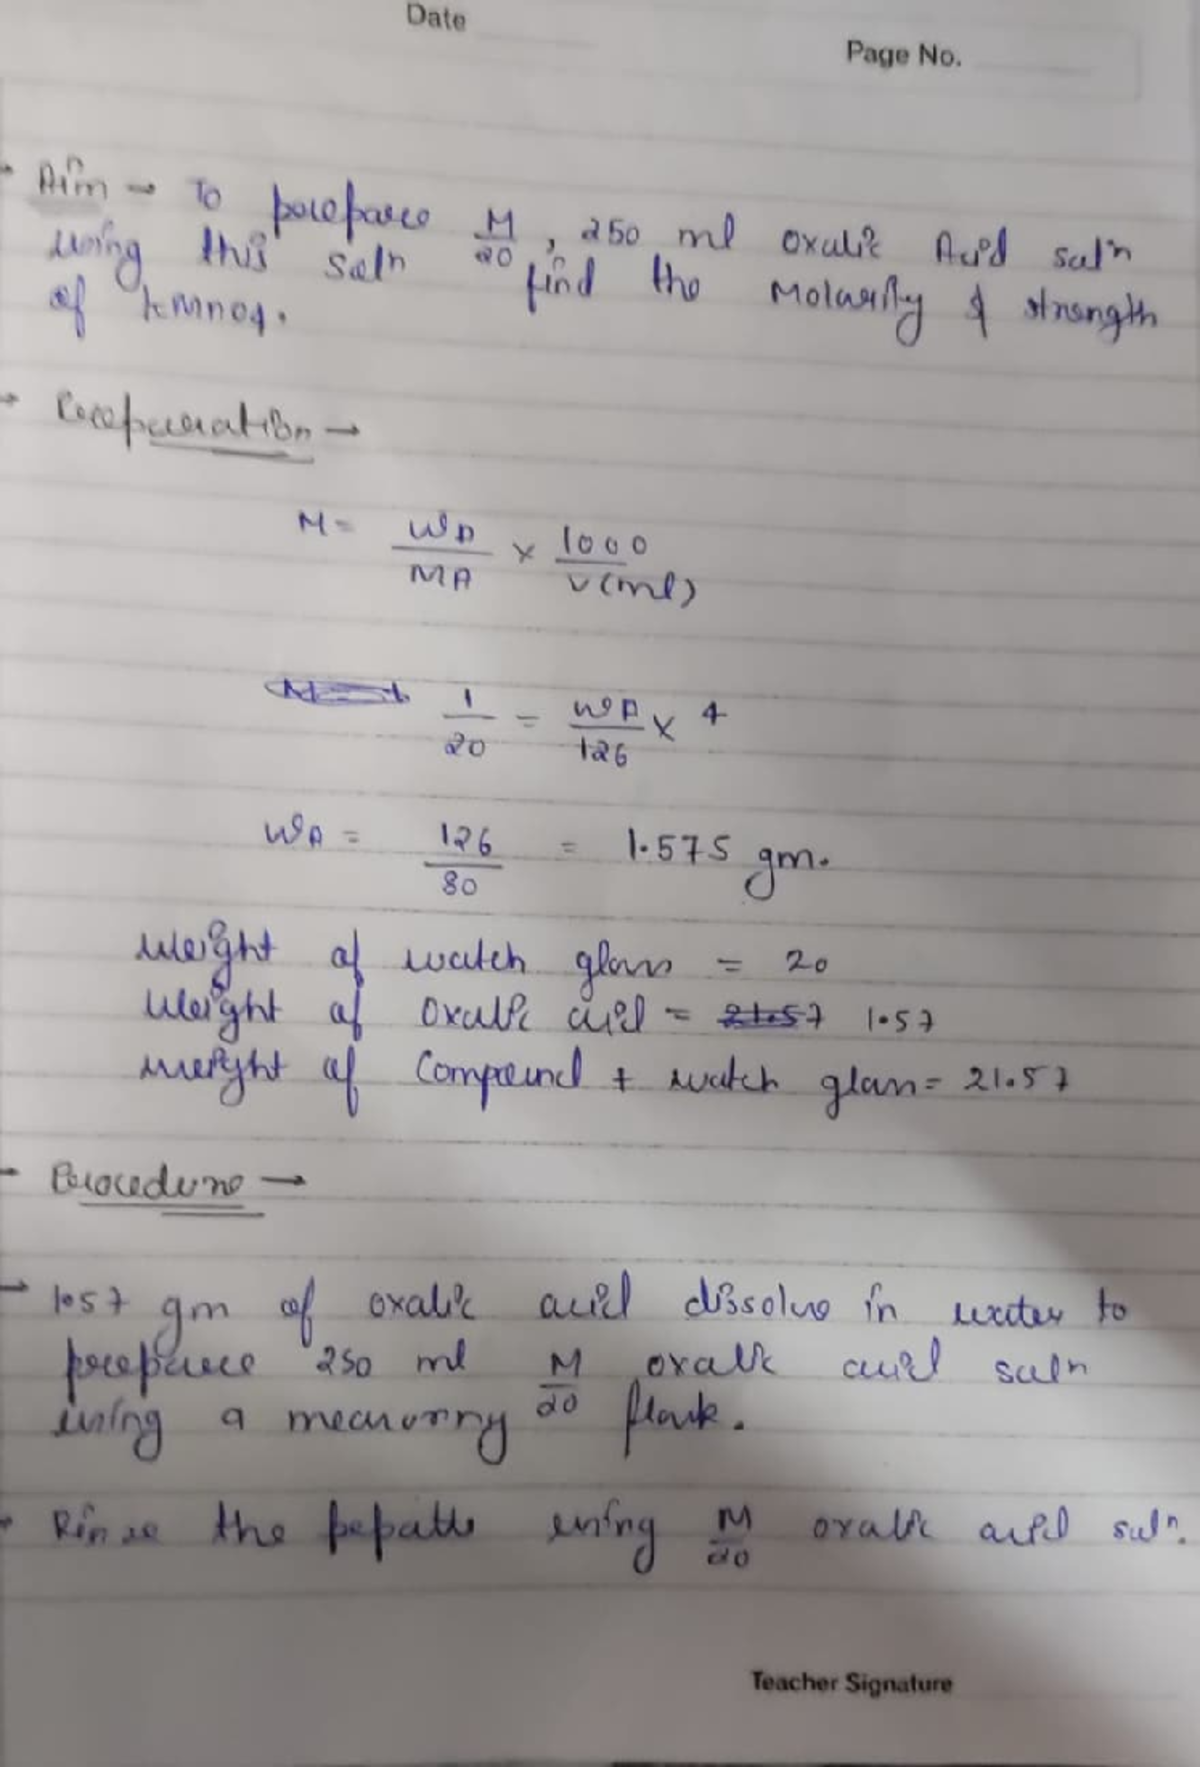 Date
Page No.
Aim → To prepare M/20, 250 ml oxalic Acid solⁿ
using this solⁿ find the Molarity & strength
of KMnO4.
Preparation →
M = WA/MA × 1000/V(ml)
1/20 = WA/126 × 4
WA = 126/80 = 1.575 gm.
Weight of watch glass = 20
Weight of oxalic acid = 21.57 1.57
Weight of Compound + watch glass = 21.57
Procedure →
→ 1.57 gm of oxalic acid dissolve in water to
prepare 250 ml M/20 oxalic acid solⁿ
using a measuring flask.
Rinse the pepatte using M/20 oxalic acid solⁿ.
Teacher Signature